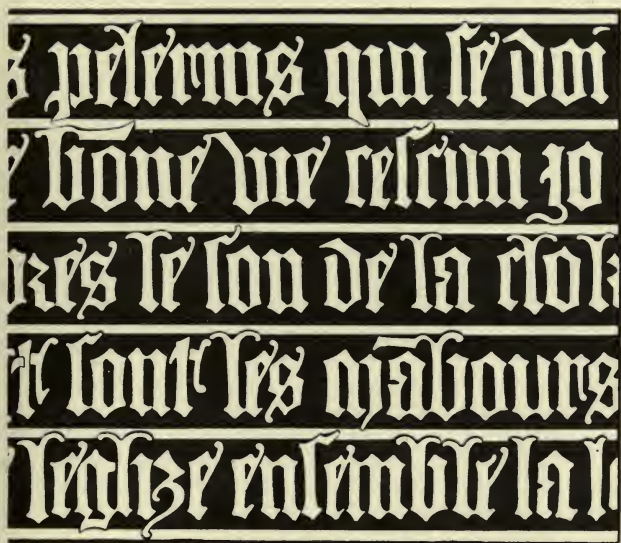 s pelerins qui ſe doi
e bōne vie ceſcun jo
res le ſon de la clok
t ſont les mābours
leglize enſemble la l